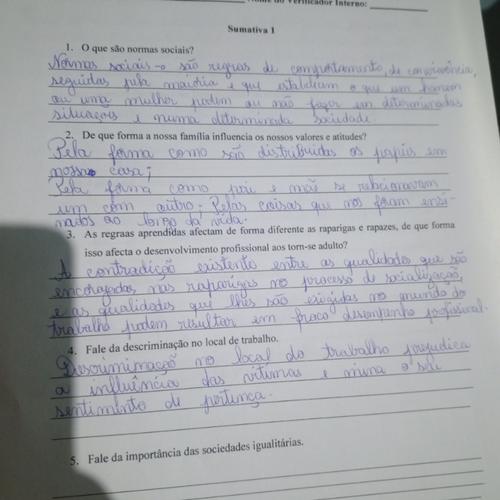 Nome do Verificador Interno:
Sumativa 1
1. O que são normas sociais?
Normas sociais → são regras de comportamento, de convivência,
seguidas pela maioria e que estabelecem o que um homem
ou uma mulher podem ou não fazer em determinadas
situações e numa determinada sociedade
2. De que forma a nossa família influencia os nossos valores e atitudes?
Pela forma como são distribuidas os papeis em
nossa casa;
Pela forma como pai e mãe se relacionavam
um com outro; Pelas coisas que nos foram ensi-
nados ao longo da vida.
3. As regraas aprendidas afectam de forma diferente as raparigas e rapazes, de que forma
isso afecta o desenvolvimento profissional aos torn-se adulto?
A contradição existente entre as qualidades que são
encorajadas nas raparigas no processo de socialização,
e as qualidades que lhes são exigidas no mundo do
trabalho podem resultar em fraco desempenho profissional.
4. Fale da descriminação no local de trabalho.
Descriminação no local do trabalho prejudica
a influência das vitimas e mina o seu
sentimento de pertença.
5. Fale da importância das sociedades igualitárias.